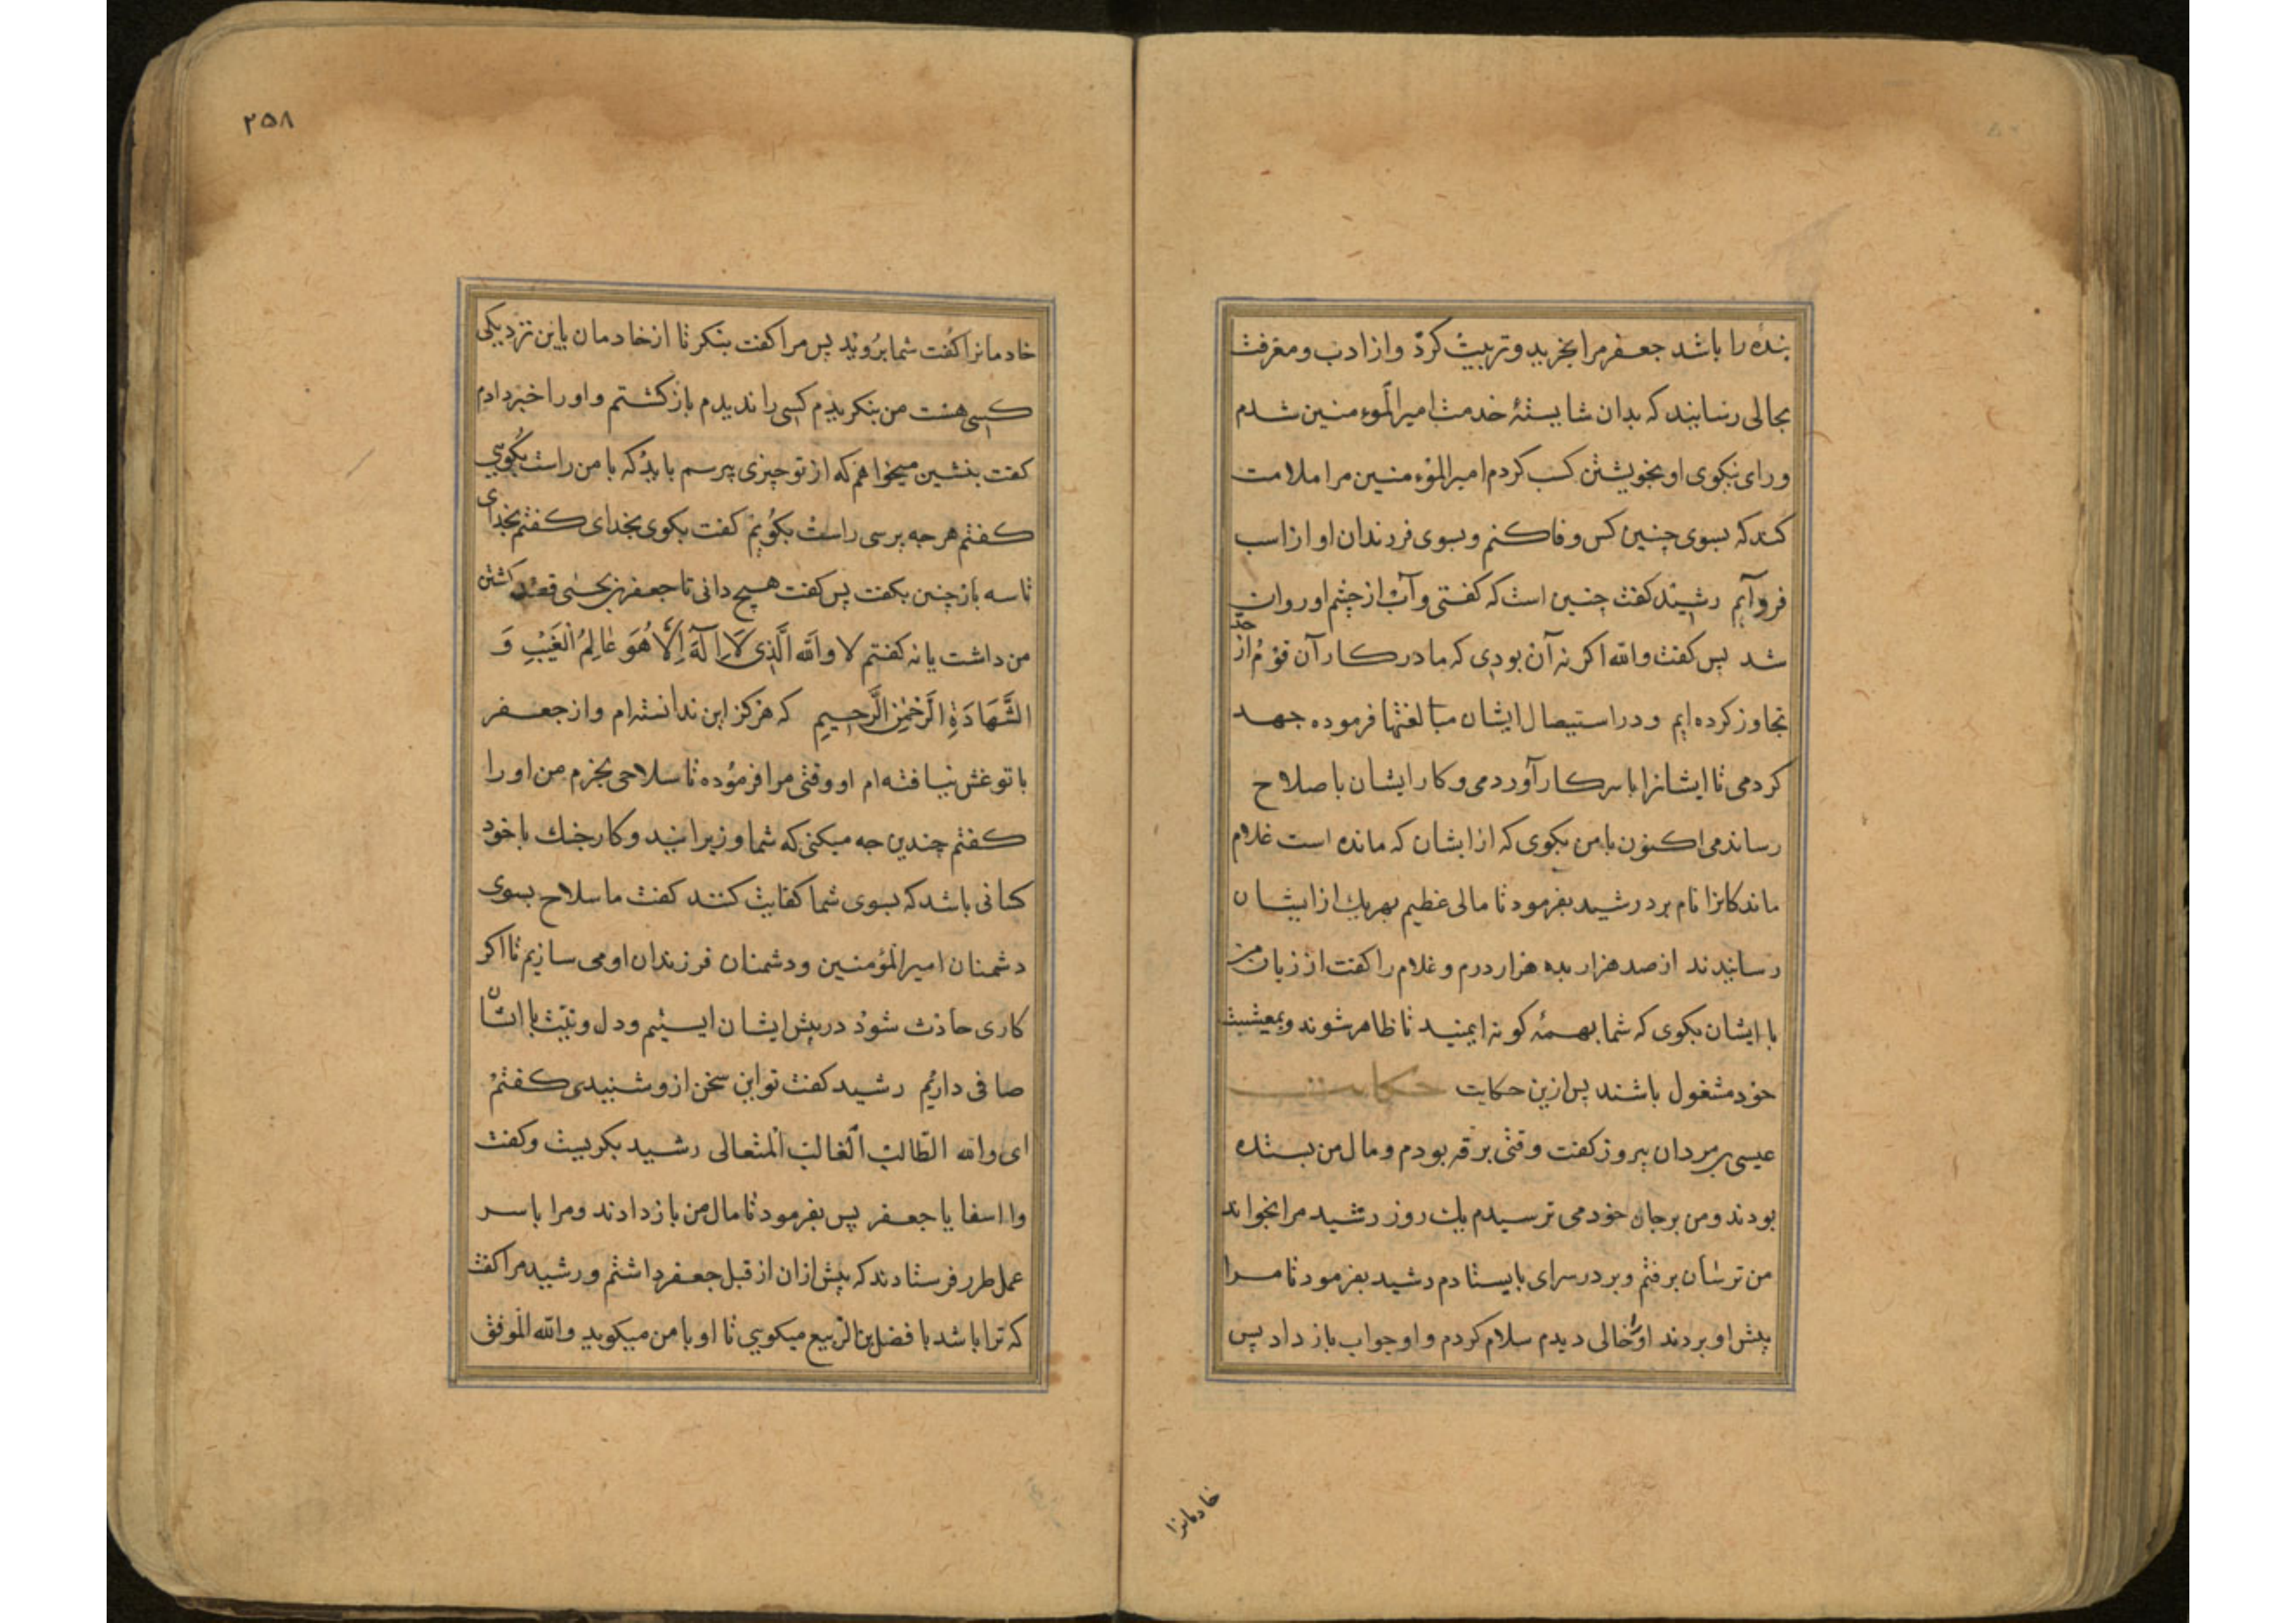 بنده را باشد جعفر مرا بخرید و تربیت کرد و از ادب و معرفت
بجالی رسانید که بدان شایستهٔ خدمت امیرالموءمنین شدم
و رای نیکوی او بخویشتن کسب کردم امیرالموءمنین مرا ملامت
کند که بسوی چنین کس وفا کنم و بسوی فرزندان او از اسب
فروآیم رشید کفت چنین است که کفتی و آب از چشم او روان
شد پس کفت والله اکر نه آن بودی که ما در کار آن قوم از حد
تجاوز کرده ایم و در استیصال ایشان مبالغتها فرموده جهد
کردمی تا ایشانرا با سر کار آوردمی و کار ایشان باصلاح
رساندمی اکنون با من بکوی که از ایشان که مانده است غلام
ماندکانرا نام برد رشید بفرمود تا مالی عظیم بهریك از ایشان
رسانیدند از صد هزار بده هزار درم و غلام را کفت از زبان من
با ایشان بکوی که شما بهمهٔ کونه ایمنید تا ظاهر شوند و بمعیشت
خود مشغول باشند پس ازین حکایت حکایت
عیسی بر مردان پیروز کفت وقتی برقه بودم و مال من بستده
بودند و من بر جان خود می ترسیدم یك روز رشید مرا بخواند
من ترسان برفتم و بر در سرای بایستادم رشید بفرمود تا مرا
پیش او بردند او را خالی دیدم سلام کردم و او جواب باز داد پس
خادمانرا
۲۵۸
خادمانرا کفت شما بروید پس مرا کفت بنکر تا از خادمان باین نزدیکی
کسی هست من بنکریدم کسی را ندیدم باز کشتم و او را خبر دادم
کفت بنشین میخواهم که از تو چیزی پرسم باید که با من راست بکویی
کفتم هر جه پرسی راست بکویم کفت بکوی بخدای کفتم بخدای
تا سه باز چنین بکفت پس کفت هیچ دانی تا جعفر بن یحیی قصد کشتن
من داشت یا نه کفتم لا والله الَّذِی لَا اِلٰهَ اِلَّا هُوَ عَالِمُ الْغَیْبِ وَ
الشَّهَادَةِ الرَّحْمٰنِ الرَّحِیمِ که هرکز این ندانسته‌ام و از جعفر
با تو غش نیافته ام او وقتی مرا فرموده تا سلاحی بخرم من او را
کفتم چندین جه میکنی که شما وزیرانید و کار جنك با خود
کسانی باشد که بسوی شما کفایت کنند کفت ما سلاح بسوی
دشمنان امیرالمؤمنین و دشمنان فرزندان او می سازیم تا اکر
کاری حادث شود در پیش ایشان ایستیم و دل و نیت با ایشان
صافی داریم رشید کفت تو این سخن ازو شنیدی کفتم
ای والله الطالب الغالب المتعالی رشید بکریست و کفت
وا اسفا یا جعفر پس بفرمود تا مال من باز دادند و مرا با سر
عمل طرر فرستادند که پیش ازان از قبل جعفر داشتم و رشید مرا کفت
که ترا باشد با فضل بن الربیع میکویی تا او با من میکوید والله الموفق